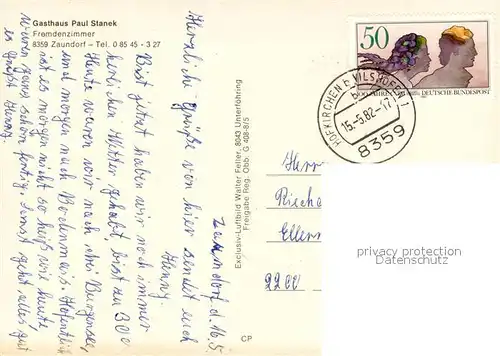 Gasthaus Paul Stanek
Fremdenzimmer
8359 Zaundorf – Tel. 0 85 45 - 3 27
Zaundorf d. 16.5.
Herzliche Grüße von hier sendet euch
Henny.
Bis jetzt haben wir noch immer
herrlichen Wetter gehabt, bis zu 30°
Heute waren wir nach
und morgen nach Bodenmais. Hoffentlich
ist es morgen nicht so heiß wie heute,
waren ganz schön fertig. Sonst geht alles gut
es grüßt Henny.
Exclusiv-Luftbild Walter Feiler, 8043 Unterföhring
Freigabe Reg. Obb. G 408-8/5
CP
50
DEUTSCHE BUNDESPOST
HOFKIRCHEN b VILSHOFEN
15.-5.82-17
8359
Herrn
Ellern
2200
privacy protection
Datenschutz